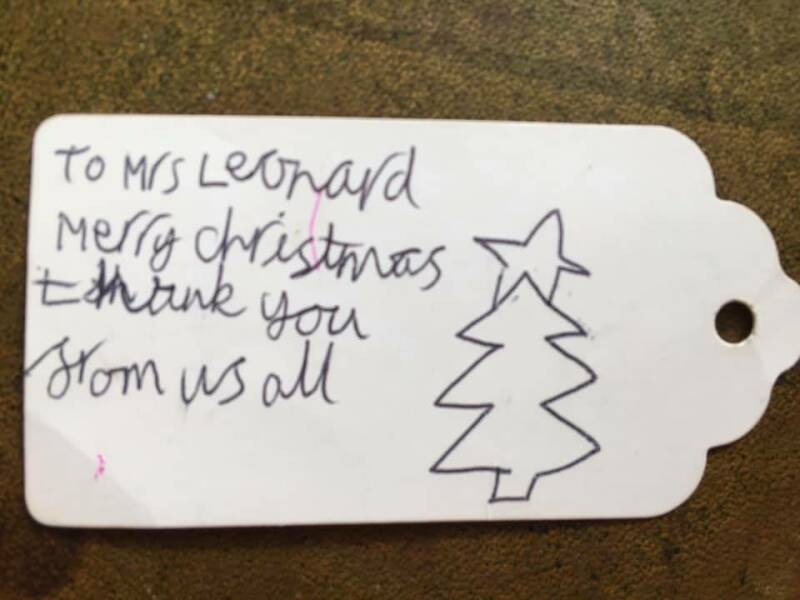 To Mrs Leonard
Merry christmas
thank you
from us all